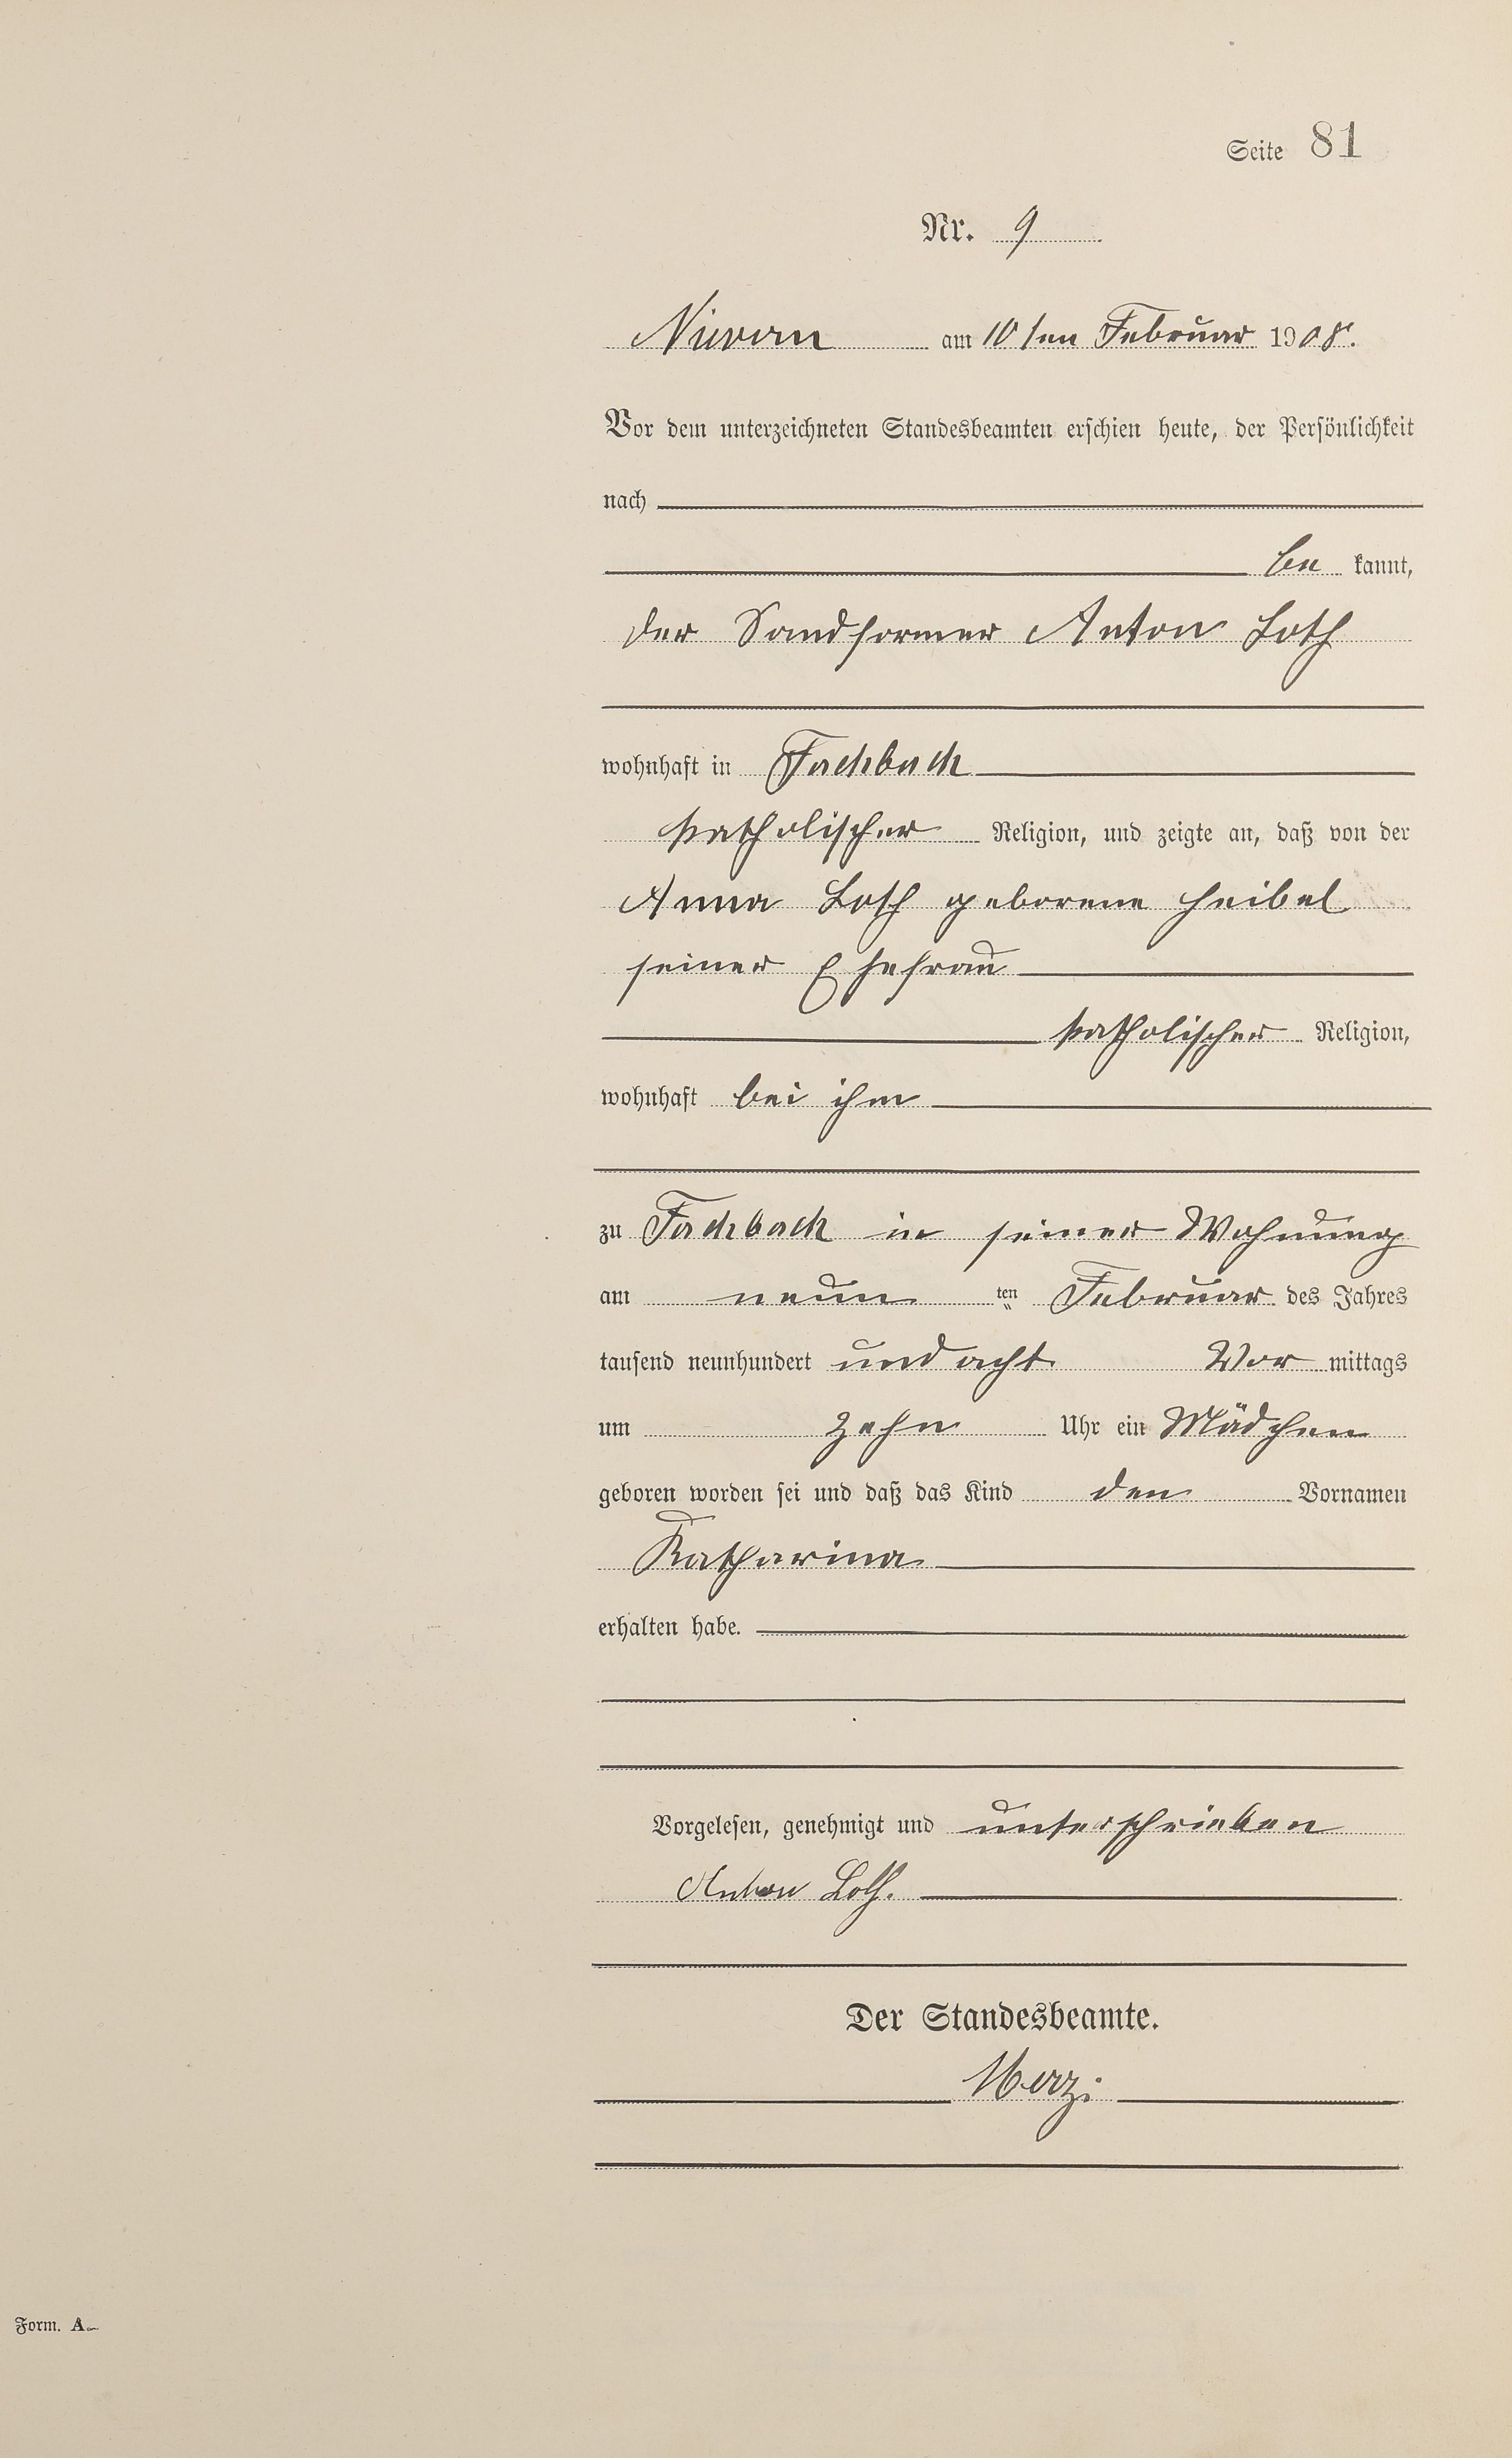 Seite 81
Nr. 9
Nievern am 10ten Februar 1908.
Vor dem unterzeichneten Standesbeamten erschien heute, der Persönlichkeit
nach
be kannt,
der Sandformer Anton Loth
wohnhaft in Fachbach
katholischer Religion, und zeigte an, daß von der
Anna Loth geborene Heibel
seiner Ehefrau
katholischer Religion,
wohnhaft bei ihm
zu Fachbach in seiner Wohnung
am neun ten Februar des Jahres
tausend neunhundert und acht Vor mittags
um zehn Uhr ein Mädchen
geboren worden sei und daß das Kind den Vornamen
Katharina
erhalten habe.
Vorgelesen, genehmigt und unterschrieben
Anton Loth.
Der Standesbeamte.
Merz.
Form. A.